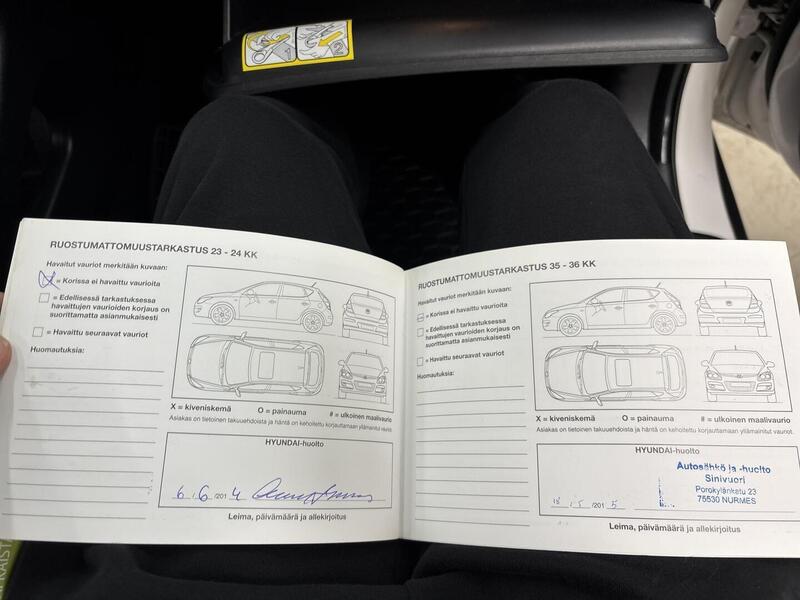 1
2
RUOSTUMATTOMUUSTARKASTUS 23 - 24 KK
Havaitut vauriot merkitään kuvaan:
X = Korissa ei havaittu vaurioita
= Edellisessä tarkastuksessa
havaittujen vaurioiden korjaus on
suoritettu asianmukaisesti
= Havaittu seuraavat vauriot
Huomautuksia:
X = kiveniskemä O = painauma # = ulkoinen maalivaurio
Asiakas on tietoinen takuuehdoista ja häntä on kehoitettu korjauttamaan yllämainitut vauriot.
HYUNDAI-huolto
6 / 6 /201 4
Leima, päivämäärä ja allekirjoitus
RUOSTUMATTOMUUSTARKASTUS 35 - 36 KK
Havaitut vauriot merkitään kuvaan:
= Korissa ei havaittu vaurioita
= Edellisessä tarkastuksessa
havaittujen vaurioiden korjaus on
suoritettu asianmukaisesti
= Havaittu seuraavat vauriot
Huomautuksia:
X = kiveniskemä O = painauma # = ulkoinen maalivaurio
Asiakas on tietoinen takuuehdoista ja häntä on kehoitettu korjauttamaan yllämainitut vauriot.
HYUNDAI-huolto
Autosähkö ja -huolto
Sinivuori
Porokylänkatu 23
75530 NURMES
/ 5 /201 5
Leima, päivämäärä ja allekirjoitus